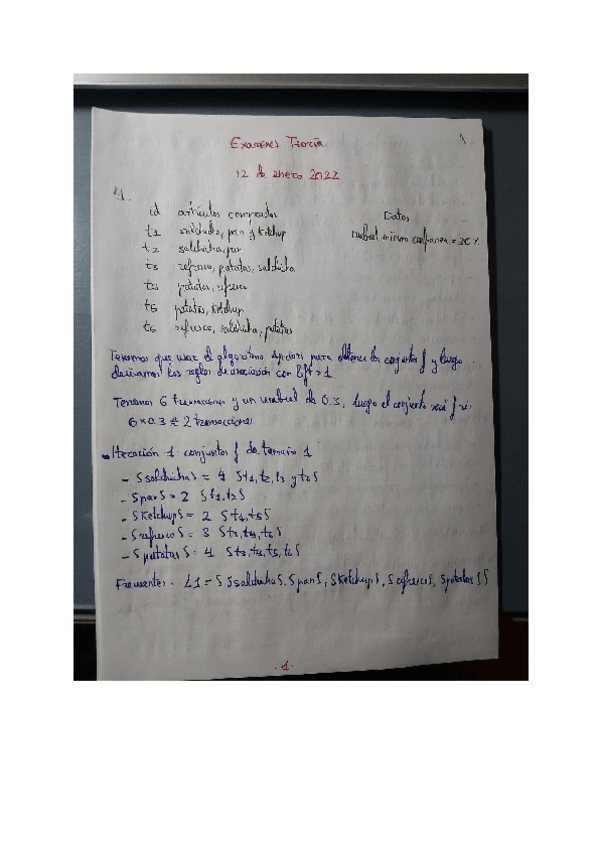 Exámenes Teoría
1
12 de enero 2022
4.
id artículos comprados
t1 salchicha, pan y ketchup
t2 salchicha, pan
t3 refresco, patatas, salchicha
patatas, refresco
t5 patatas, ketchup
t6 refresco, salchicha, patatas
Datos
Umbral mínimo confianza = 30%
Tenemos que usar el algoritmo Apriori para obtener los conjuntos f y luego
derivamos las reglas de asociación con lift > 1
Tenemos 6 transacciones y un umbral de 0.3, luego el conjunto será f si
6 x 0.3 ≈ 2 transacciones
Iteración 1: conjuntos f de tamaño 1
- {salchicha} = 4 {t1, t2, t3 y t6}
- {pan} = 2 {t1, t2}
- {Ketchup} = 2 {t1, t5}
- {refresco} = 3 {t3, t4, t6}
- {patatas} = 4 {t3, t4, t5, t6}
Frecuentes. L1 = { {salchicha}, {pan}, {Ketchup}, {refresco}, {patatas} }
-1-